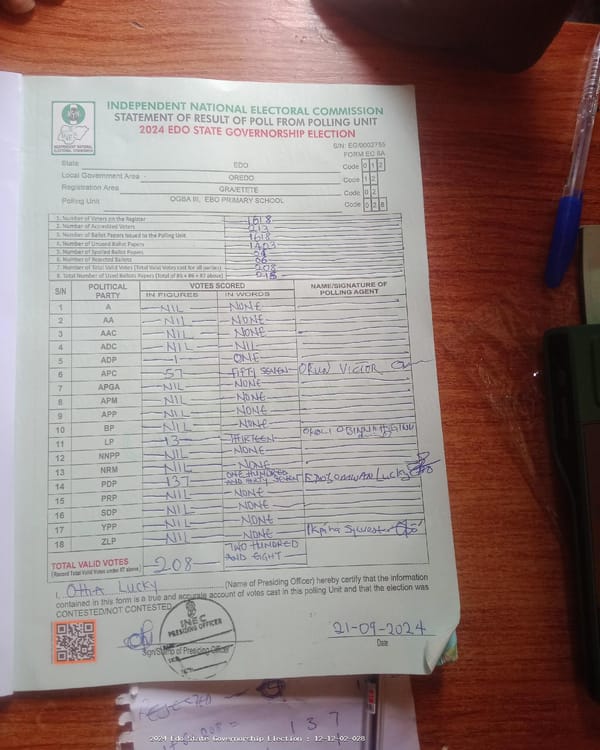 INDEPENDENT NATIONAL ELECTORAL COMMISSION
STATEMENT OF RESULT OF POLL FROM POLLING UNIT
2024 EDO STATE GOVERNORSHIP ELECTION
S/N: EG/0002755
FORM EC 8A
State EDO Code 0 1 2
Local Government Area OREDO Code 1 2
Registration Area GRA/ETETE Code 0 2
Polling Unit OGBA III, EBO PRIMARY SCHOOL Code 0 2 8
1. Number of Voters on the Register 1618
2. Number of Accredited Voters 213
3. Number of Ballot Papers Issued to the Polling Unit 1618
4. Number of Unused Ballot Papers 1403
5. Number of Spoiled Ballot Papers
6. Number of Rejected Ballots
7. Number of Total Valid Votes (Total Valid Votes cast for all parties) 208
8. Total Number of Used Ballot Papers (Total of #5 + #6 + #7 above)
S/N POLITICAL PARTY VOTES SCORED NAME/SIGNATURE OF POLLING AGENT
IN FIGURES IN WORDS
1 A NIL NONE
2 AA NIL NONE
3 AAC NIL NONE
4 ADC NIL NIL
5 ADP 1 ONE
6 APC 57 FIFTY SEVEN ORUN VICTOR
7 APGA NIL NONE
8 APM NIL NONE
9 APP NIL NONE
10 BP NIL NONE
11 LP 13 THIRTEEN
12 NNPP NIL NONE
13 NRM NIL NONE
14 PDP 137 ONE HUNDRED AND THIRTY SEVEN Lucky
15 PRP NIL NONE
16 SDP NIL NONE
17 YPP NIL NONE
18 ZLP NIL NONE Sylvester
TOTAL VALID VOTES 208 TWO HUNDRED AND EIGHT
(Record Total Valid Votes under #7 above)
I, Lucky (Name of Presiding Officer) hereby certify that the information
contained in this form is a true and accurate account of votes cast in this polling Unit and that the election was
CONTESTED/NOT CONTESTED.
INEC
PRESIDING OFFICER
21-09-2024
Sign/Stamp of Presiding Officer Date
REJECTED
137
2024 Edo State Governorship Election : 12-12-02-028